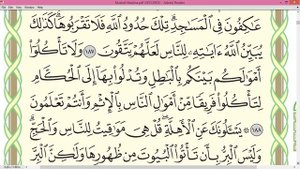 عَٰكِفُونَ فِي ٱلْمَسَٰجِدِ تِلْكَ حُدُودُ ٱللَّهِ فَلَا تَقْرَبُوهَا كَذَٰلِكَ
يُبَيِّنُ ٱللَّهُ ءَايَٰتِهِۦ لِلنَّاسِ لَعَلَّهُمْ يَتَّقُونَ ١٨٧ وَلَا تَأْكُلُوٓا۟
أَمْوَٰلَكُم بَيْنَكُم بِٱلْبَٰطِلِ وَتُدْلُوا۟ بِهَآ إِلَى ٱلْحُكَّامِ
لِتَأْكُلُوا۟ فَرِيقًا مِّنْ أَمْوَٰلِ ٱلنَّاسِ بِٱلْإِثْمِ وَأَنتُمْ تَعْلَمُونَ
١٨٨ يَسْـَٔلُونَكَ عَنِ ٱلْأَهِلَّةِ قُلْ هِىَ مَوَٰقِيتُ لِلنَّاسِ وَٱلْحَجِّ
وَلَيْسَ ٱلْبِرُّ بِأَن تَأْتُوا۟ ٱلْبُيُوتَ مِن ظُهُورِهَا وَلَٰكِنَّ ٱلْبِرَّ